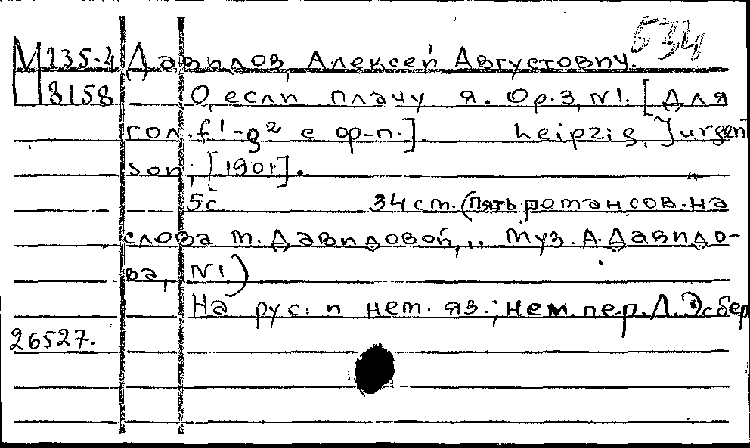 534
М 135-4 Давидов, Алексей Августович.
8158 О, если плачу я. Op.3, N1. [Для
гол. f¹-g² с ф-п.]. Leipzig, Jurgen
son, [1901].
5с 34 см. (Пять романсов на
слова т. Давидовой, .. муз. А. Давидо-
ва, N1)
На рус. и нем. яз.; нем. пер. Л. Эсбер
26527.